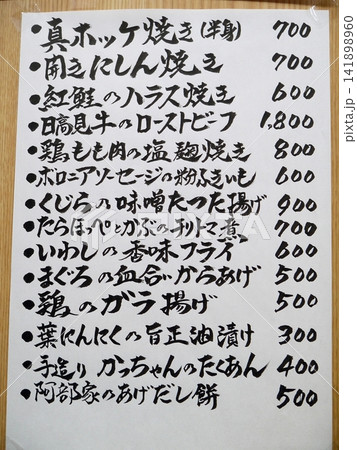 ・真ホッケ焼き(半身) 700
・開きにしん焼き 700
・紅鮭のハラス焼き 600
・日高見牛のローストビーフ 1,800
・鶏もも肉の塩麹焼き 800
・ボロニアソーセージの粉ふきいも 600
・くじらの味噌たつた揚げ 900
・たらほっぺとかぶのチリトマ煮 700
・いわしの香味フライ 600
・まぐろの血合いからあげ 500
・鶏のガラ揚げ 500
・葉にんにくの旨正油漬け 300
・手造り かっちゃんのたくあん 400
・阿部家のあげだし餅 500
pixta.jp - 141898960